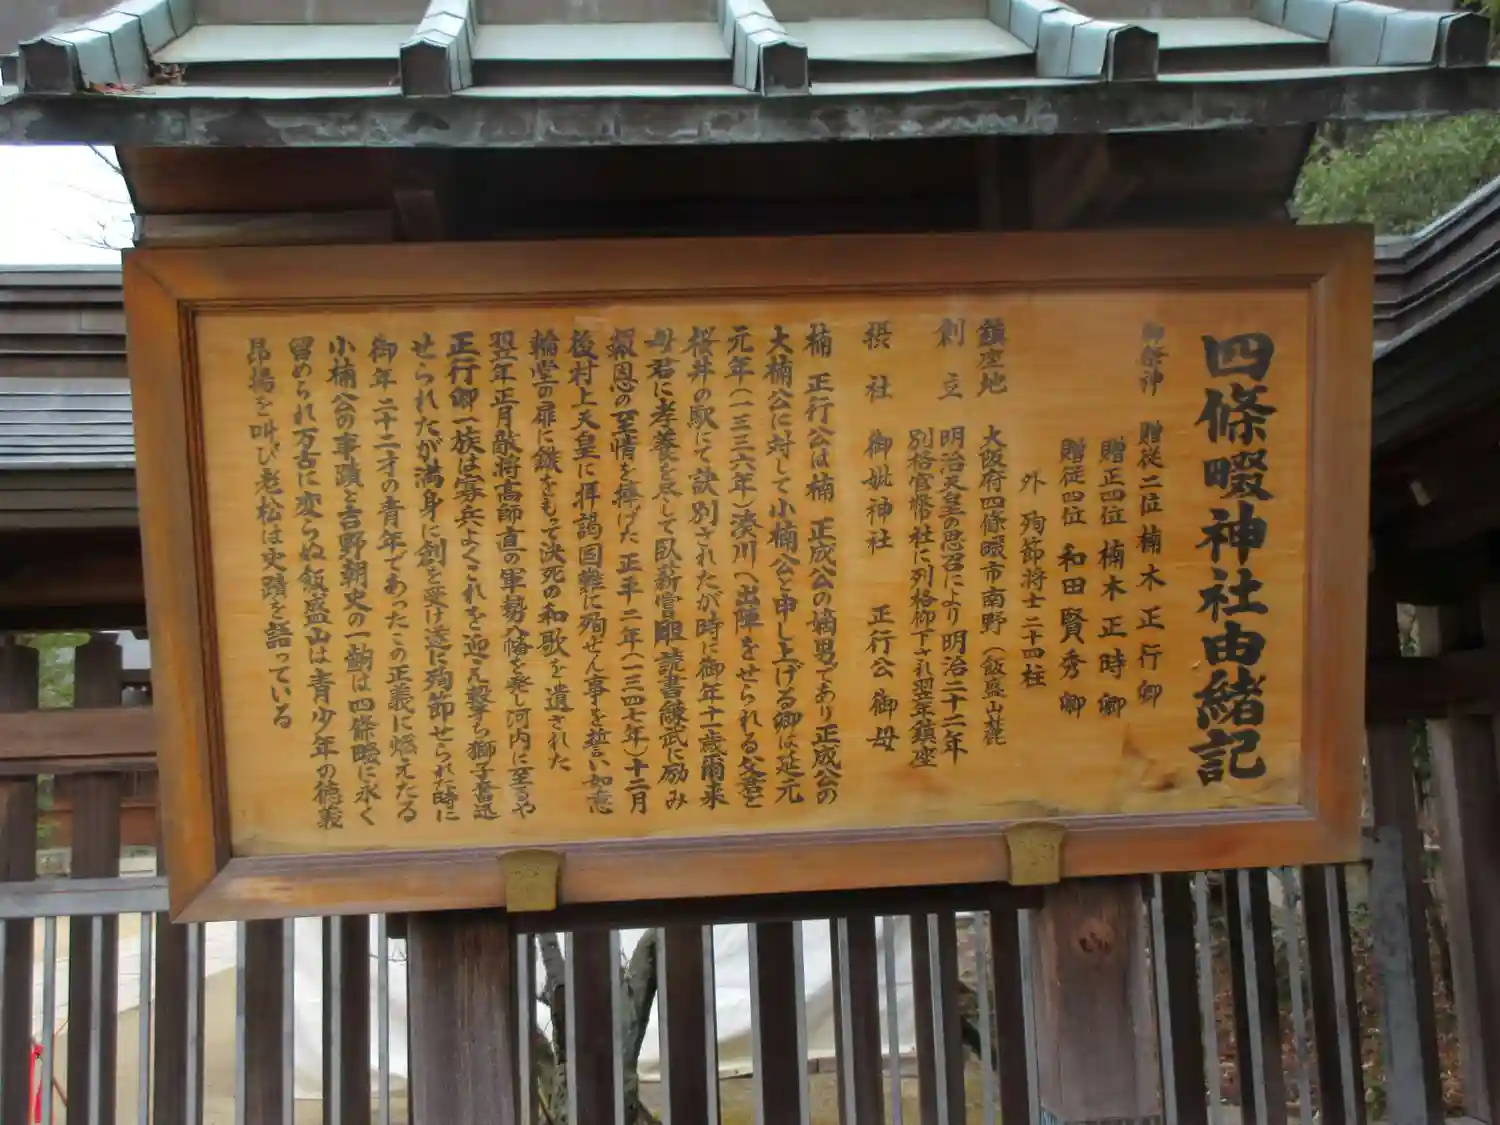 四條畷神社由緒記
御祭神 贈従二位楠木正行卿
贈正四位楠木正時卿
贈従四位和田賢秀卿
外 殉節将士二十四柱
鎮座地 大阪府四條畷市南野（飯盛山麓
創立 明治天皇の思召により明治二十二年
別格官幣社に列格仰下され翌年鎮座
摂社 御妣神社 正行公御母
楠 正行公は楠 正成公の嫡男であり正成公の
大楠公に対して小楠公と申し上げる卿は延元
元年（一三三六年）湊川へ出陣をせられる父君と
桜井の駅にて訣別されたが時に御年十一歳爾来
母君に孝養を尽して臥薪嘗胆読書練武に励み
報恩の至情を捧げた正平二年（一三四七年）十二月
後村上天皇に拝謁国難に殉せん事を誓い如意
輪堂の扉に鏃をもって決死の和歌を遺された
翌年正月敵将高師直の軍勢八幡を発し河内に至るや
正行卿一族は寡兵よくこれを迎え撃ち獅子奮迅
せられたが満身に創を受け遂に殉節せられた時に
御年二十二才の青年であったこの正義に燃えたる
小楠公の事蹟を吉野朝史の一齣は四條畷に永く
留められ万古に変らぬ飯盛山は青少年の徳義
昂揚を叫び老松は史蹟を語っている